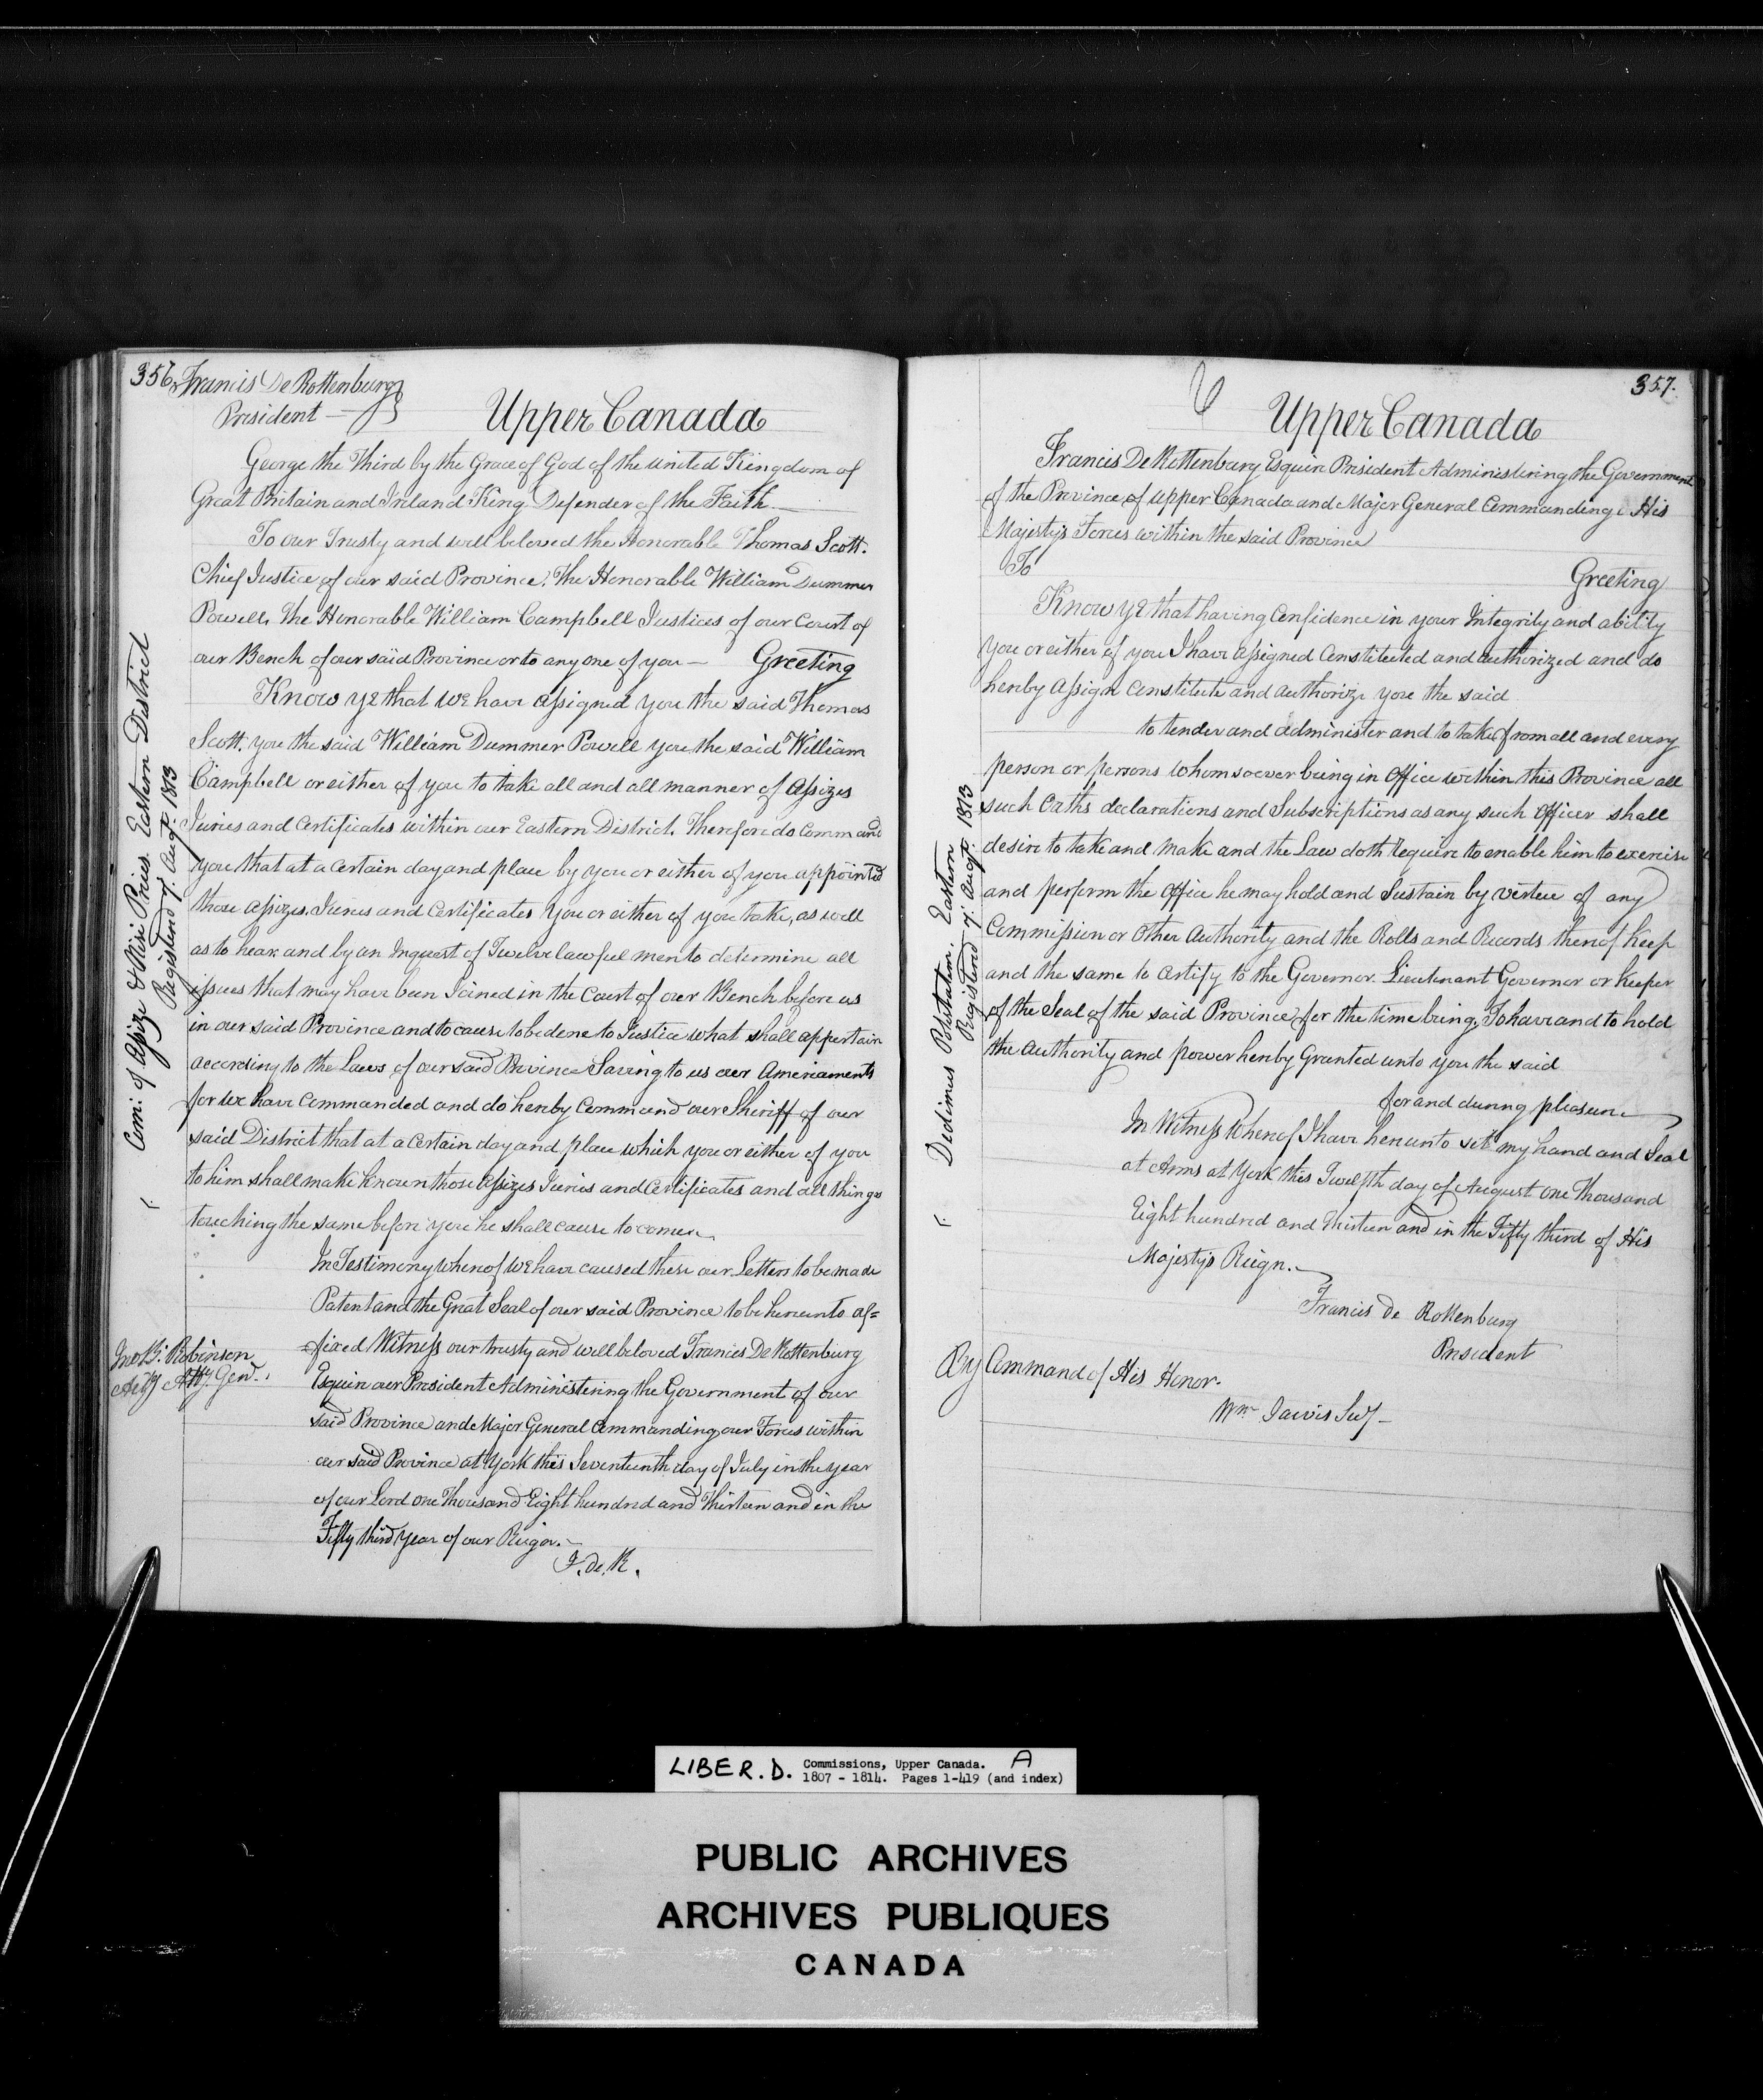 356.
Francis De Rottenburg
President —
Upper Canada
George the Third by the Grace of God of the United Kingdom of
Great Britain and Ireland King Defender of the Faith —
To our Trusty and well beloved the Honorable Thomas Scott.
Chief Justice of our said Province. The Honorable William Dummer
Powell, The Honorable William Campbell Justices of our Court of
our Bench of our said Province or to any one of you — Greeting
Know ye that we have assigned you the said Thomas
Scott. you the said William Dummer Powell you the said William
Campbell or either of you to take all and all manner of Assizes
Juries and Certificates within our Eastern District. Therefore do Command
you that at a certain day and place by you or either of you appointed
those Assizes. Juries and Certificates you or either of you take, as well
as to hear and by an Inquest of Twelve lawful men to determine all
issues that may have been Joined in the Court of our Bench before us
in our said Province and to cause to be done to Justice what shall appertain
according to the Laws of our said Province Saving to us our Amerciaments
for we have Commanded and do hereby Command our Sheriff of our
said District that at a certain day and place which you or either of you
to him shall make known those Assizes Juries and Certificates and all things
touching the same before you he shall cause to come.
In Testimony whereof We have caused these our Letters to be made
Patent and the Great Seal of our said Province to be hereunto af=
fixed Witness our trusty and well beloved Francis De Rottenburg
Esquire our President Administering the Government of our
said Province and Major General Commanding our Forces within
our said Province at York this Seventeenth day of July in the year
of our Lord One Thousand Eight hundred and Thirteen and in the
Fifty third year of our Reign.—
F. de. R.
Com: of Assize & Nisi Prius. Eastern District
Registered 7: Augt. 1813
Jno B: Robinson
Actg Atty. Genl.
357.
Upper Canada
Francis De Rottenburg Esquire President Administering the Government
of the Province of Upper Canada and Major General Commanding His
Majesty's Forces within the said Province
To Greeting
Know ye that having Confidence in your Integrity and ability
you or either of you I have assigned Constituted and authorized and do
hereby assign Constitute and authorize you the said
to tender and administer and to take from all and every
person or persons whomsoever being in Office within this Province all
such Oaths declarations and Subscriptions as any such Officer shall
desire to take and make and the Law doth require to enable him to exercise
and perform the Office he may hold and Sustain by virtue of any
Commission or Other Authority and the Rolls and Records thereof Keep
and the same to Certify to the Governor. Lieutenant Governor or Keeper
of the Seal of the said Province for the time being. To have and to hold
the Authority and power hereby Granted unto you the said
for and during pleasure
In Witness Whereof I have hereunto set my hand and Seal
at Arms at York this Twelfth day of August One Thousand
Eight hundred and Thirteen and in the Fifty third of His
Majesty's Reign.—
Francis de Rottenburg
President
By Command of His Honor.
Wm. Jarvis Secy—
Dedimus Potestatem. Eastern
Registered 7: Augt. 1813
LIBER. D. Commissions, Upper Canada. A
1807 - 1814. Pages 1-419 (and index)
PUBLIC ARCHIVES
ARCHIVES PUBLIQUES
CANADA